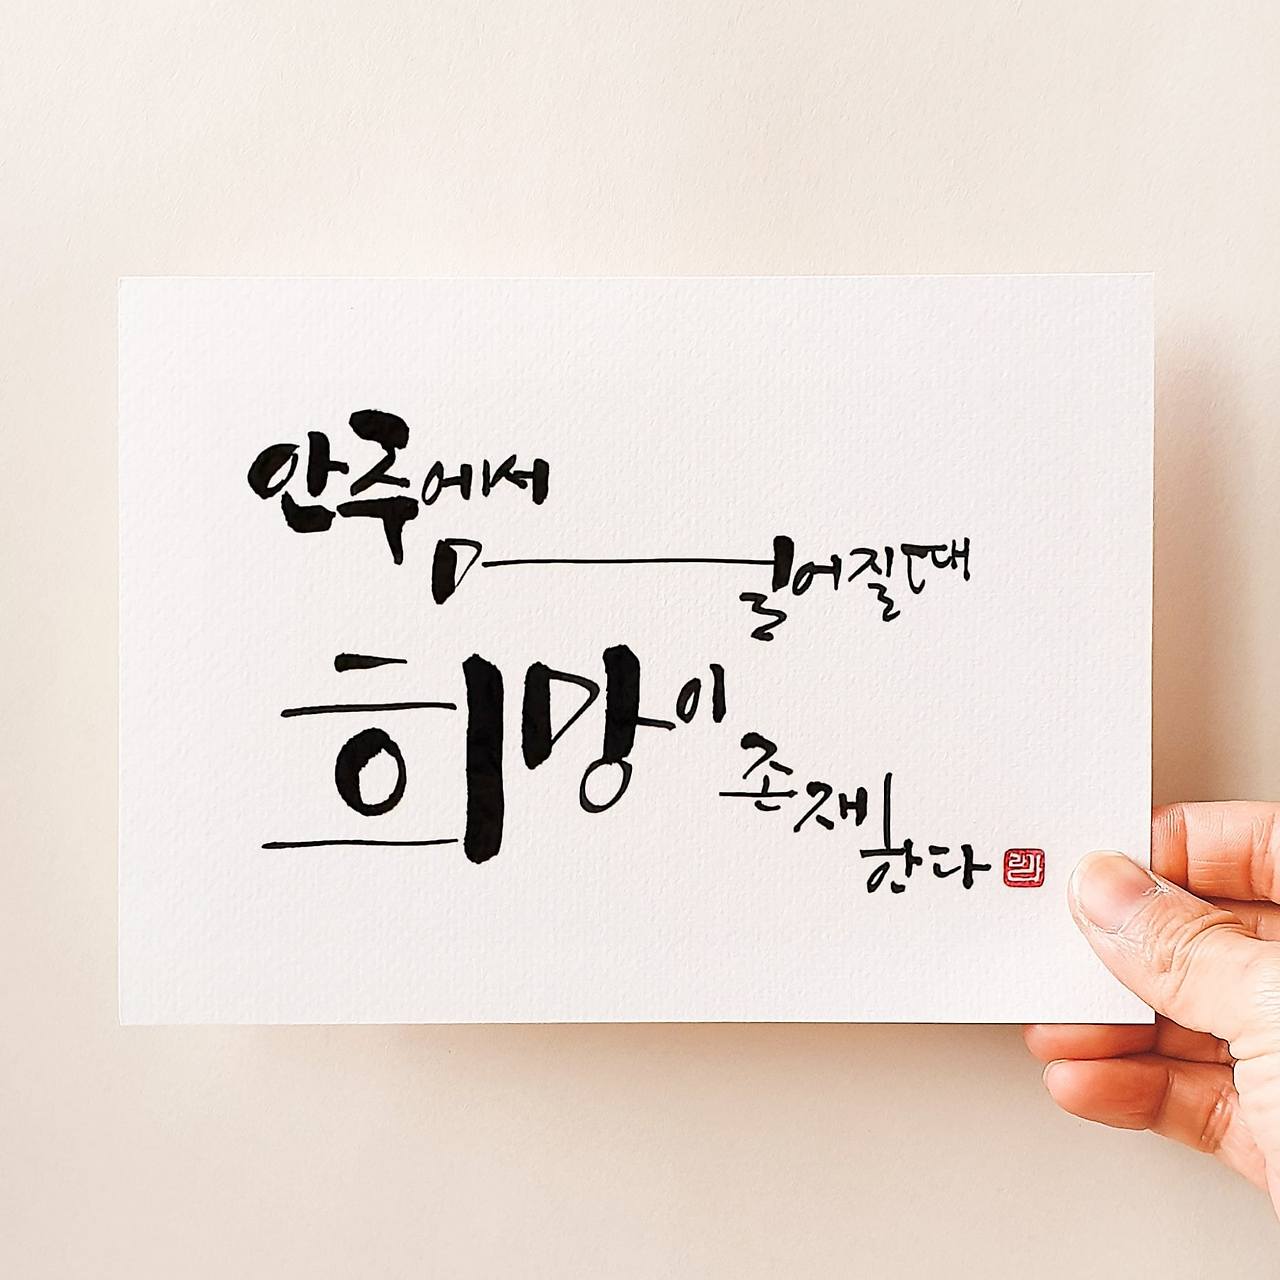 안주에서
멀어질때
희망이
존재한다